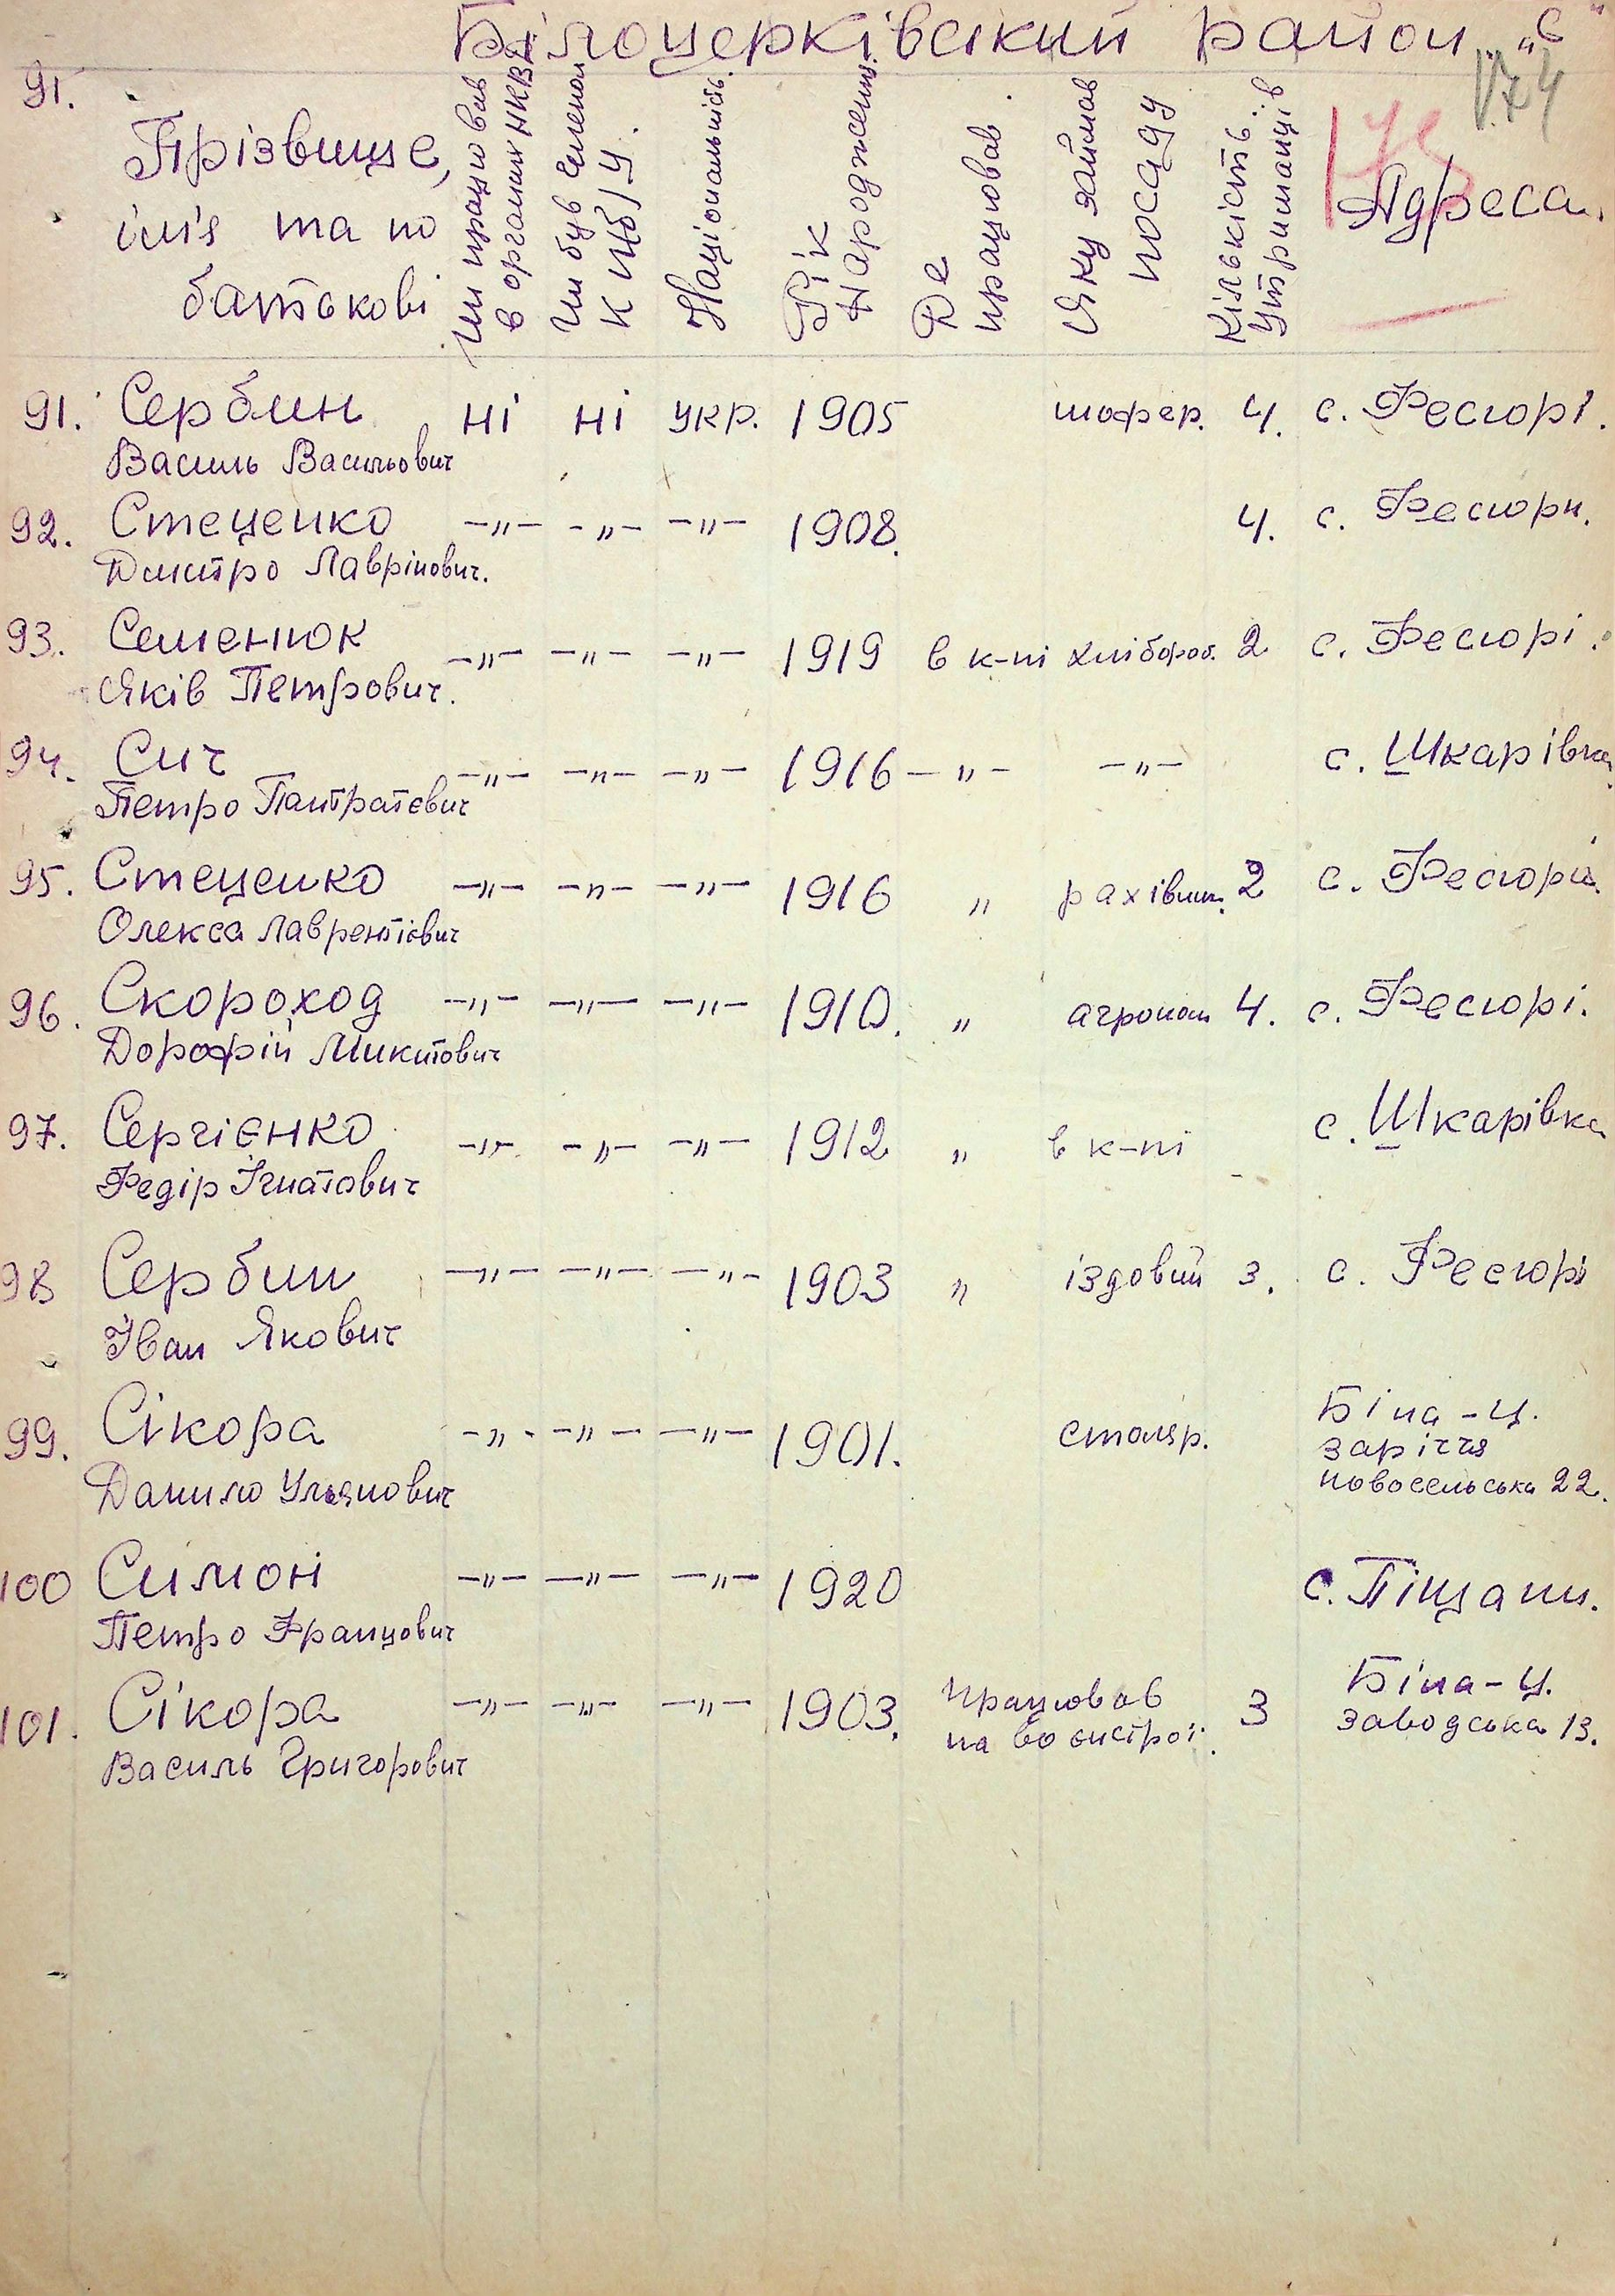 Білоцерківский район „С"
174
91.
Прізвище,
ім'я та по
батькові
Чи працював
в органах НКВД
Чи був членом
К П(б)У.
Національність.
Рік
Народження.
Де
працював.
Яку займав
посаду
Кількість
утриманців
Адреса.
91. Сербин ні ні укр. 1905 шофер. 4. с. Фесюрі.
Василь Васильович
92. Стеценко -„- -„- -„- 1908. 4. с. Фесюри.
Дмитро Лаврінович.
93. Семенюк -„- -„- -„- 1919 в к-пі хлібороб. 2 с. Фесюрі.
Яків Петрович.
94. Сич -„- -„- -„- 1916 -„- -„- с. Шкарівка
Петро Пантратєвич
95. Стеценко -„- -„- -„- 1916 „ рахівник. 2 с. Фесюрі.
Олекса Лаврентієвич
96. Скороход -„- -„- -„- 1910. „ агроном 4. с. Фесюрі.
Дорофій Микитович
97. Сергієнко -„- -„- -„- 1912 „ в к-пі с. Шкарівка
Федір Ігнатович
98 Сербин -„- -„- -„- 1903 „ їздовий 3. с. Фесюрі
Іван Якович
99. Сікора -„- -„- -„- 1901. столяр. Біла-Ц.
Заріччя
Новосельська 22.
Данило Ульянович
100 Симон -„- -„- -„- 1920 с. Піщани.
Петро Францович
101. Сікора -„- -„- -„- 1903. працював 3 Біла-Ц.
на Заводська 13.
Василь Григорович